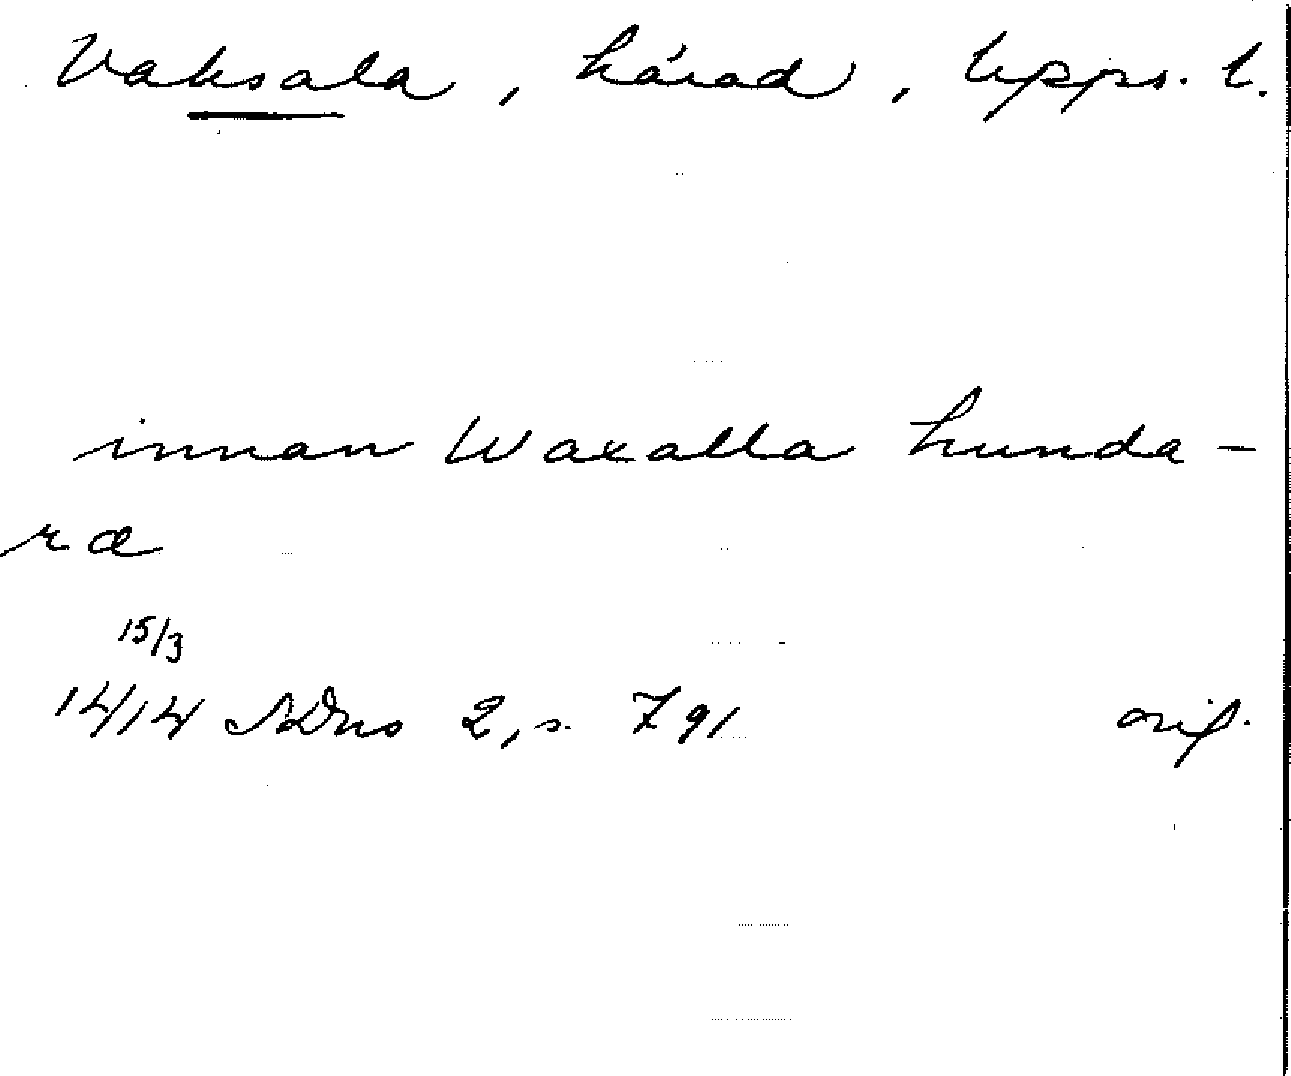 Vaksala, härad, Upps. l.
innan Waxalla hunda-
ræ
15/3
1414 SDns 2, s. 791 orig.